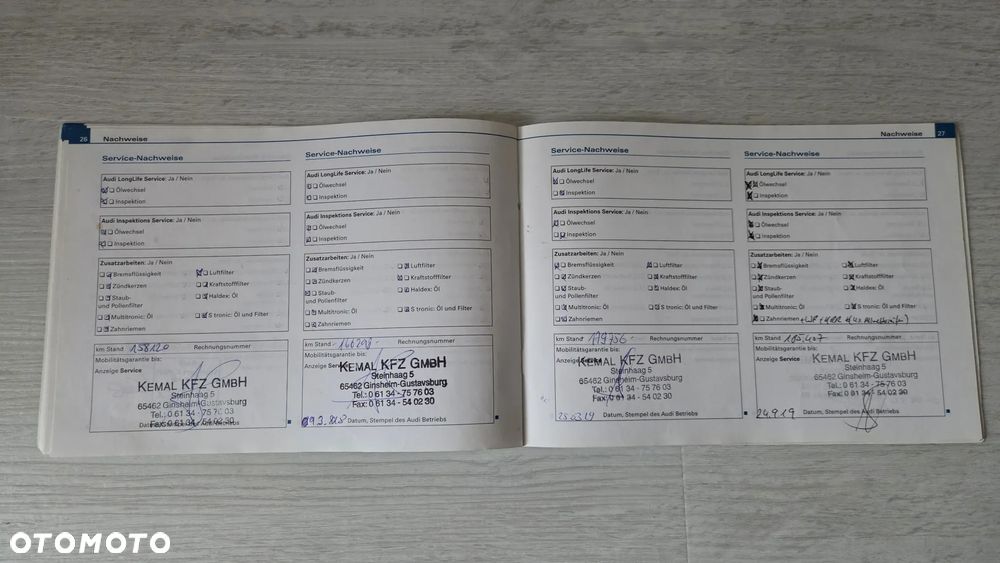 26 Nachweise
Service-Nachweise
Audi LongLife Service: Ja / Nein
Ölwechsel
Inspektion
Audi Inspektions Service: Ja / Nein
Ölwechsel
Inspektion
Zusatzarbeiten: Ja / Nein
Bremsflüssigkeit Luftfilter
Zündkerzen Kraftstofffilter
Staub- Haldex: Öl
und Pollenfilter
Multitronic: Öl S tronic: Öl und Filter
Zahnriemen
km Stand 158120 Rechnungsnummer
Mobilitätsgarantie bis:
Anzeige Service
KEMAL KFZ GMBH
Steinhaag 5
65462 Ginsheim-Gustavsburg
Tel.: 0 61 34 - 75 76 03
Fax: 0 61 34 - 54 02 30
Service-Nachweise
Audi LongLife Service: Ja / Nein
Ölwechsel
Inspektion
Audi Inspektions Service: Ja / Nein
Ölwechsel
Inspektion
Zusatzarbeiten: Ja / Nein
Bremsflüssigkeit Luftfilter
Zündkerzen Kraftstofffilter
Staub- Haldex: Öl
und Pollenfilter
Multitronic: Öl S tronic: Öl und Filter
Zahnriemen
km Stand Rechnungsnummer
Mobilitätsgarantie bis:
Anzeige Service
KEMAL KFZ GMBH
Steinhaag 5
65462 Ginsheim-Gustavsburg
Tel.: 0 61 34 - 75 76 03
Fax: 0 61 34 - 54 02 30
Datum, Stempel des Audi Betriebs
Nachweise 27
Service-Nachweise
Audi LongLife Service: Ja / Nein
Ölwechsel
Inspektion
Audi Inspektions Service: Ja / Nein
Ölwechsel
Inspektion
Zusatzarbeiten: Ja / Nein
Bremsflüssigkeit Luftfilter
Zündkerzen Kraftstofffilter
Staub- Haldex: Öl
und Pollenfilter
Multitronic: Öl S tronic: Öl und Filter
Zahnriemen
km Stand 179756 Rechnungsnummer
Mobilitätsgarantie bis:
Anzeige Service
KEMAL KFZ GMBH
Steinhaag 5
65462 Ginsheim-Gustavsburg
Tel.: 0 61 34 - 75 76 03
Fax: 0 61 34 - 54 02 30
25.03.19 Datum, Stempel des Audi Betriebs
Service-Nachweise
Audi LongLife Service: Ja / Nein
Ölwechsel
Inspektion
Audi Inspektions Service: Ja / Nein
Ölwechsel
Inspektion
Zusatzarbeiten: Ja / Nein
Bremsflüssigkeit Luftfilter
Zündkerzen Kraftstofffilter
Staub- Haldex: Öl
und Pollenfilter
Multitronic: Öl S tronic: Öl und Filter
Zahnriemen
km Stand 185,407 Rechnungsnummer
Mobilitätsgarantie bis:
Anzeige Service
KEMAL KFZ GMBH
Steinhaag 5
65462 Ginsheim-Gustavsburg
Tel.: 0 61 34 - 75 76 03
Fax: 0 61 34 - 54 02 30
24.9.19 Datum, Stempel des Audi Betriebs
OTOMOTO